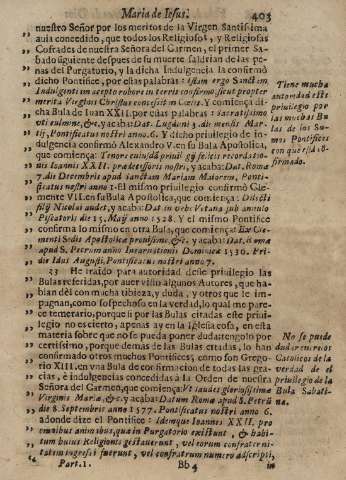 Maria de Iesus. 403
nuestro Señor por los meritos de la Virgen Santissima
auia concedido, que todos los Religiosos, y Religiosas
Cofrades de nuestra Señora del Carmen, el primer Sa-
bado siguiente despues de su muerte saldrian de las pe-
nas del Purgatorio, y la dicha Indulgencia la confirmó
dicho Pontifice, por estas palabras: Istam ergo Sanctam
Indulgentiam accepto robore in terris confirmo, sicut propter
merita Virginis Christus concessit in Cœlis. Y comiença di-
cha Bula de Iuan XXII. por estas palabras: Sacratissimo
vti culmine, &c. y acaba: Dat.
tij, Pontificatus nostri anno. 6. Y dicho priuilegio de in-
dulgencia confirmó Alexandro V. en su Bula Apostolica,
que comiença: Tenore cuiusdã priuilegij felicis recordatio-
nis Ioannis XXII. prædecessoris nostri, y acaba: Dat. Romæ
7. die Decembris apud Sanctam Mariam Maiorem, Ponti-
ficatus nostri anno 1. El mismo priuilegio confirmó Cle-
mente VII. en su Bula Apostolica, que comiença: Dilecti
filij Nicolai audet, y acaba: Dat. in Vrbe Vetana sub annulo
Piscatoris die 15. Maij anno 1528. Y el mismo Pontifice
confirma lo mismo en otra Bula, que comiença: Ex Cle-
menti Sedis Apostolicæ prouisione, &c. y acaba: Dat. Romæ
apud S. Petrum anno Incarnationis Dominicæ 1530. Pri-
die Idus Augusti, Pontificatus nostri anno 7.
33 He traido para autoridad deste priuilegio las
Bulas referidas, por auer visto algunos Autores, que ha-
blan dèl con mucha tibieza, y duda, y otros que le im-
pugnan, como sospechoso en la verdad, lo qual me pare-
ce temerario, porque si por las Bulas citadas este priui-
legio no es cierto, apenas ay en la Iglesia cosa, en esta
materia sobre que no se pueda poner duda: tengolo por
certissimo, porque demás de las Bulas citadas, lo han
confirmado otros muchos Pontifices; como son Grego-
rio XIII. en vna Bula de confirmacion de todas las gra-
cias, è indulgencias concedidas à la Orden de nuestra
Señora del Carmen, que comiença: Vt laudes gloriosissimæ
Virginis Mariæ, &c. y acaba: Datum Romæ apud S. Petrũ
die 8. Septembris anno 1577. Pontificatus nostri anno 6.
adonde dize el Pontifice: Idemque Ioannes XXII. pro
omnibus animabus, quæ in Purgatorio existunt, & habi-
tum huius Religionis gestauerunt, vel eorum confraterni-
tatem ingressi fuerunt, vel confratrum numero adscripti,
Part. 1. Bb 4 in
Tiene mucha
autoridad este
priuilegio por
las muchas Bu
las de los Su-
mos Pontifices
con que està cõ-
firmado.
No se puede
dudar entre los
Catolicos de la
verdad de el
priuilegio de la
Bula Sabati-
na.